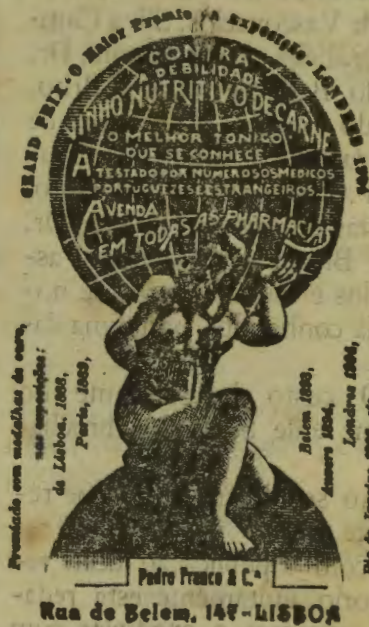 GRAND PRIX - O Maior Premio na Exposição - LONDRES 1904
CONTRA
A DEBILIDADE
VINHO NUTRITIVO DE CARNE
O MELHOR TONICO
QUE SE CONHECE
ATESTADO POR NUMEROSOS MEDICOS
PORTUGUEZES E ESTRANGEIROS
Á VENDA
EM TODAS AS PHARMACIAS
Premiado com medalhas de ouro,
nas exposições:
de Lisboa, 1888,
Paris, 1889,
Belem 1893,
1894,
Londres 1904,
Rio de Janeiro
Pedro Franco & C.ª
Rua de Belem, 147-LISBOA